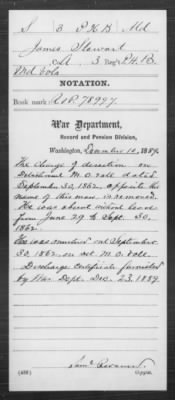 S 3 P.H.B Md
James Stewart
Co. , 3 Reg't P.H.B.
Md Vols
NOTATION.
Book mark: R&P. 78997
War Department,
Record and Pension Division,
Washington, December 10, 1889.
The charge of desertion on
Detachment M.O. roll dated
September 30, 1862, opposite the
name of this man is removed.
He was absent without leave
from June 29 to Sept. 30,
1862.
He was mustered out September
30, 1862 on set M.O. roll.
Discharge Certificate furnished
by War Dept. Dec. 23, 1889.
Saml
Copyist.